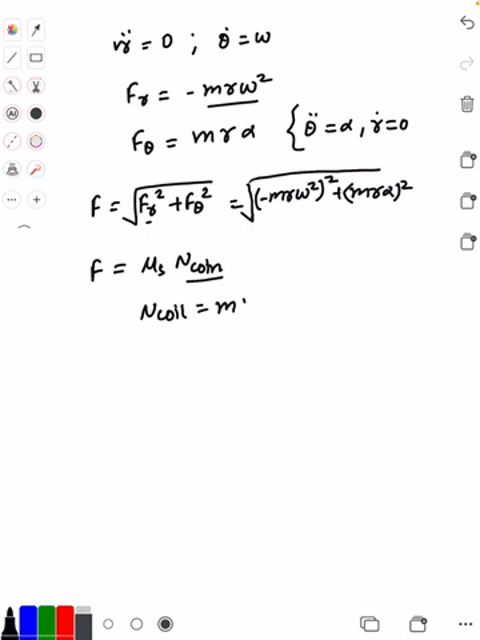 r̈ = 0 ; θ̇ = ω
Fr = - mrω²
Fθ = mrα { θ̈ = α, ṙ = 0
F = √(Fr² + Fθ²) = √((-mrω²)² + (mrα)²
F = μs Ncoin
Ncoil = m